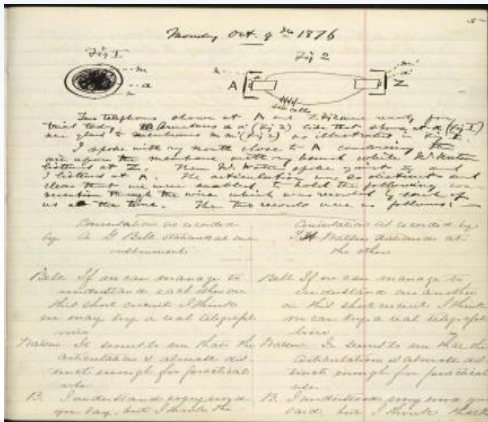 Monday Oct. 9th 1876
Fig 1
Fig 2
m
a
A
Z
Two telephones shown at A and Z Figure 2 ready for
trial today. Armatures a a' (Fig 2) like that shown at a (Fig 1)
are glued to membranes m m' (Fig 2) as illustrated in Fig 2.
I spoke with my mouth close to A
the membrane with my hand while Mr Watson
listened at Z. Then Mr Watson spoke at Z and
I listened at A. The articulation was so distinct and
clear that we were enabled to hold the following con
versation through the wire, which was recorded by each of
us at the time. The two records were as follows:
Conversation as recorded
by A G Bell stationed at one
instrument
Bell If we can manage to
understand each other on
this short circuit I think
we may try a real telegraph
wire
Watson. It seems to me that the
articulation is almost dis-
tinct enough for practical
use
B. I understand everything
you say, but I think the
Conversation as recorded by
T A Watson stationed at
the other
Bell If we can manage to
understand one another
on this short circuit I think
we can try a real telegraph
line
Watson It seems to me that the
articulation is almost dis
tinct enough for practical
use
B. I understand every word you
said but I think